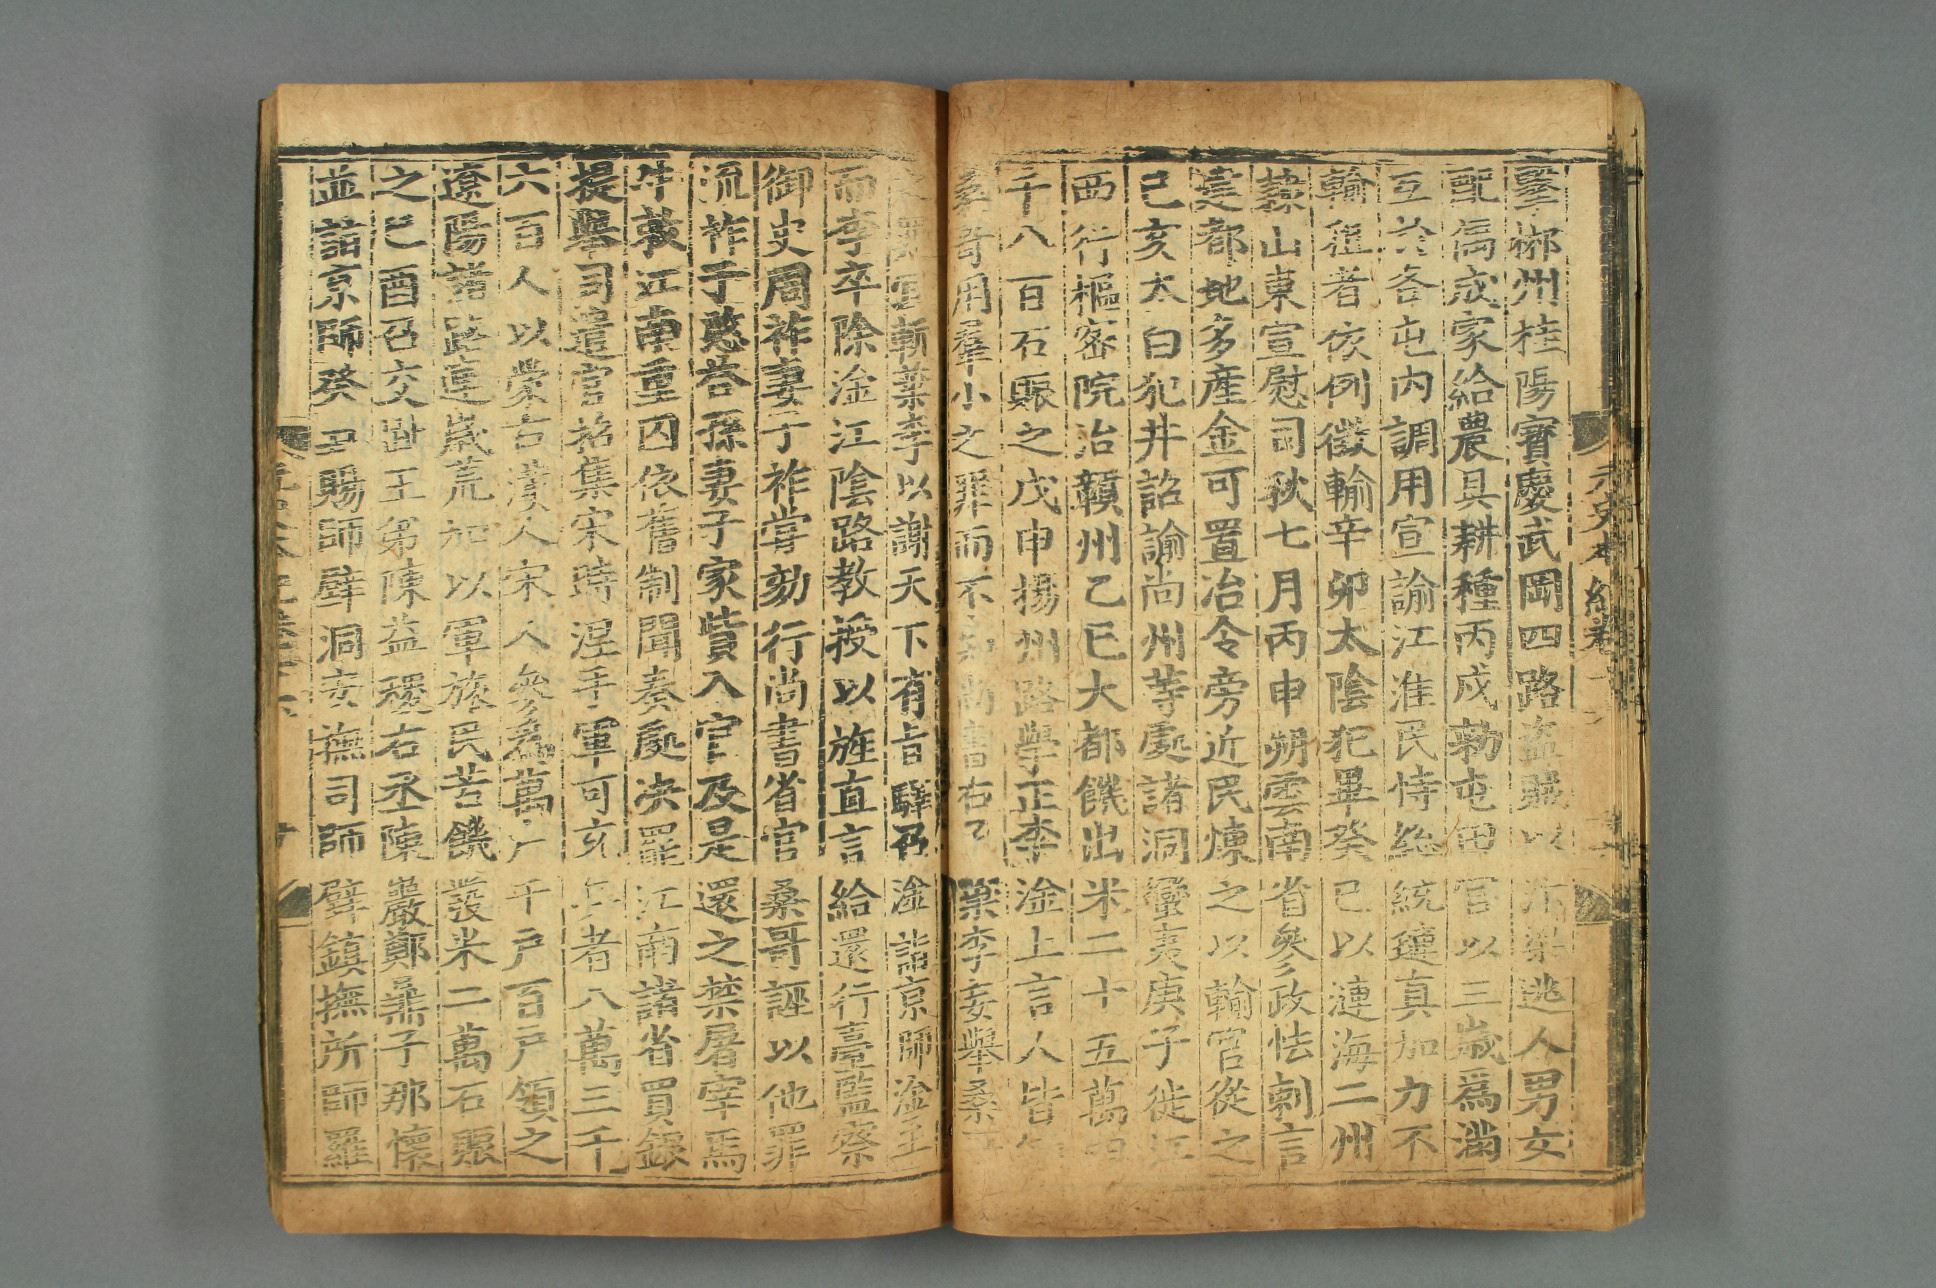 元史本紀卷十六
鑿郴州桂陽寶慶武岡四路盜賊以汴梁逃人男女
配偶成家給農具耕種丙戌勑屯田官以三歲爲滿
互於各屯內調用宣諭江淮民恃總統璉真加力不
輸租者依例徵輸辛卯太陰犯畢癸巳以漣海二州
隸山東宣慰司秋七月丙申朔雲南省參政怯剌言
建都地多產金可置冶令旁近民煉之以輸官從之
己亥太白犯井詔諭尚州等處諸洞蠻夷庚子徙江
西行樞密院治贛州乙巳大都饑出米二十五萬四
千八百石賑之戊申揚州路學正李淦上言人皆知
桑哥用羣小之罪而不知尚書右丞葉李妄舉桑哥
之罪宜斬葉李以謝天下有旨驛召淦詣京師淦至
而李卒除淦江陰路教授以旌直言給還行臺監察
御史周祚妻子祚嘗劾行尚書省官桑哥誣以他罪
流祚于憨荅孫妻子家貲入官及是還之禁屠宰馬
牛敕江南重囚依舊制聞奏處決罷江南諸省買銀
提舉司遣官招集宋時涅手軍可充兵者八萬三千
六百人以蒙古漢人宋人參爲萬户千户百户領之
遼陽諸路連歲荒加以軍旅民苦饑發米二萬石賑
之己酉召交趾王弟陳益稷右丞陳巖鄭鼎子那懷
並詣京師癸丑賜師壁洞安撫司師壁鎮撫所師羅